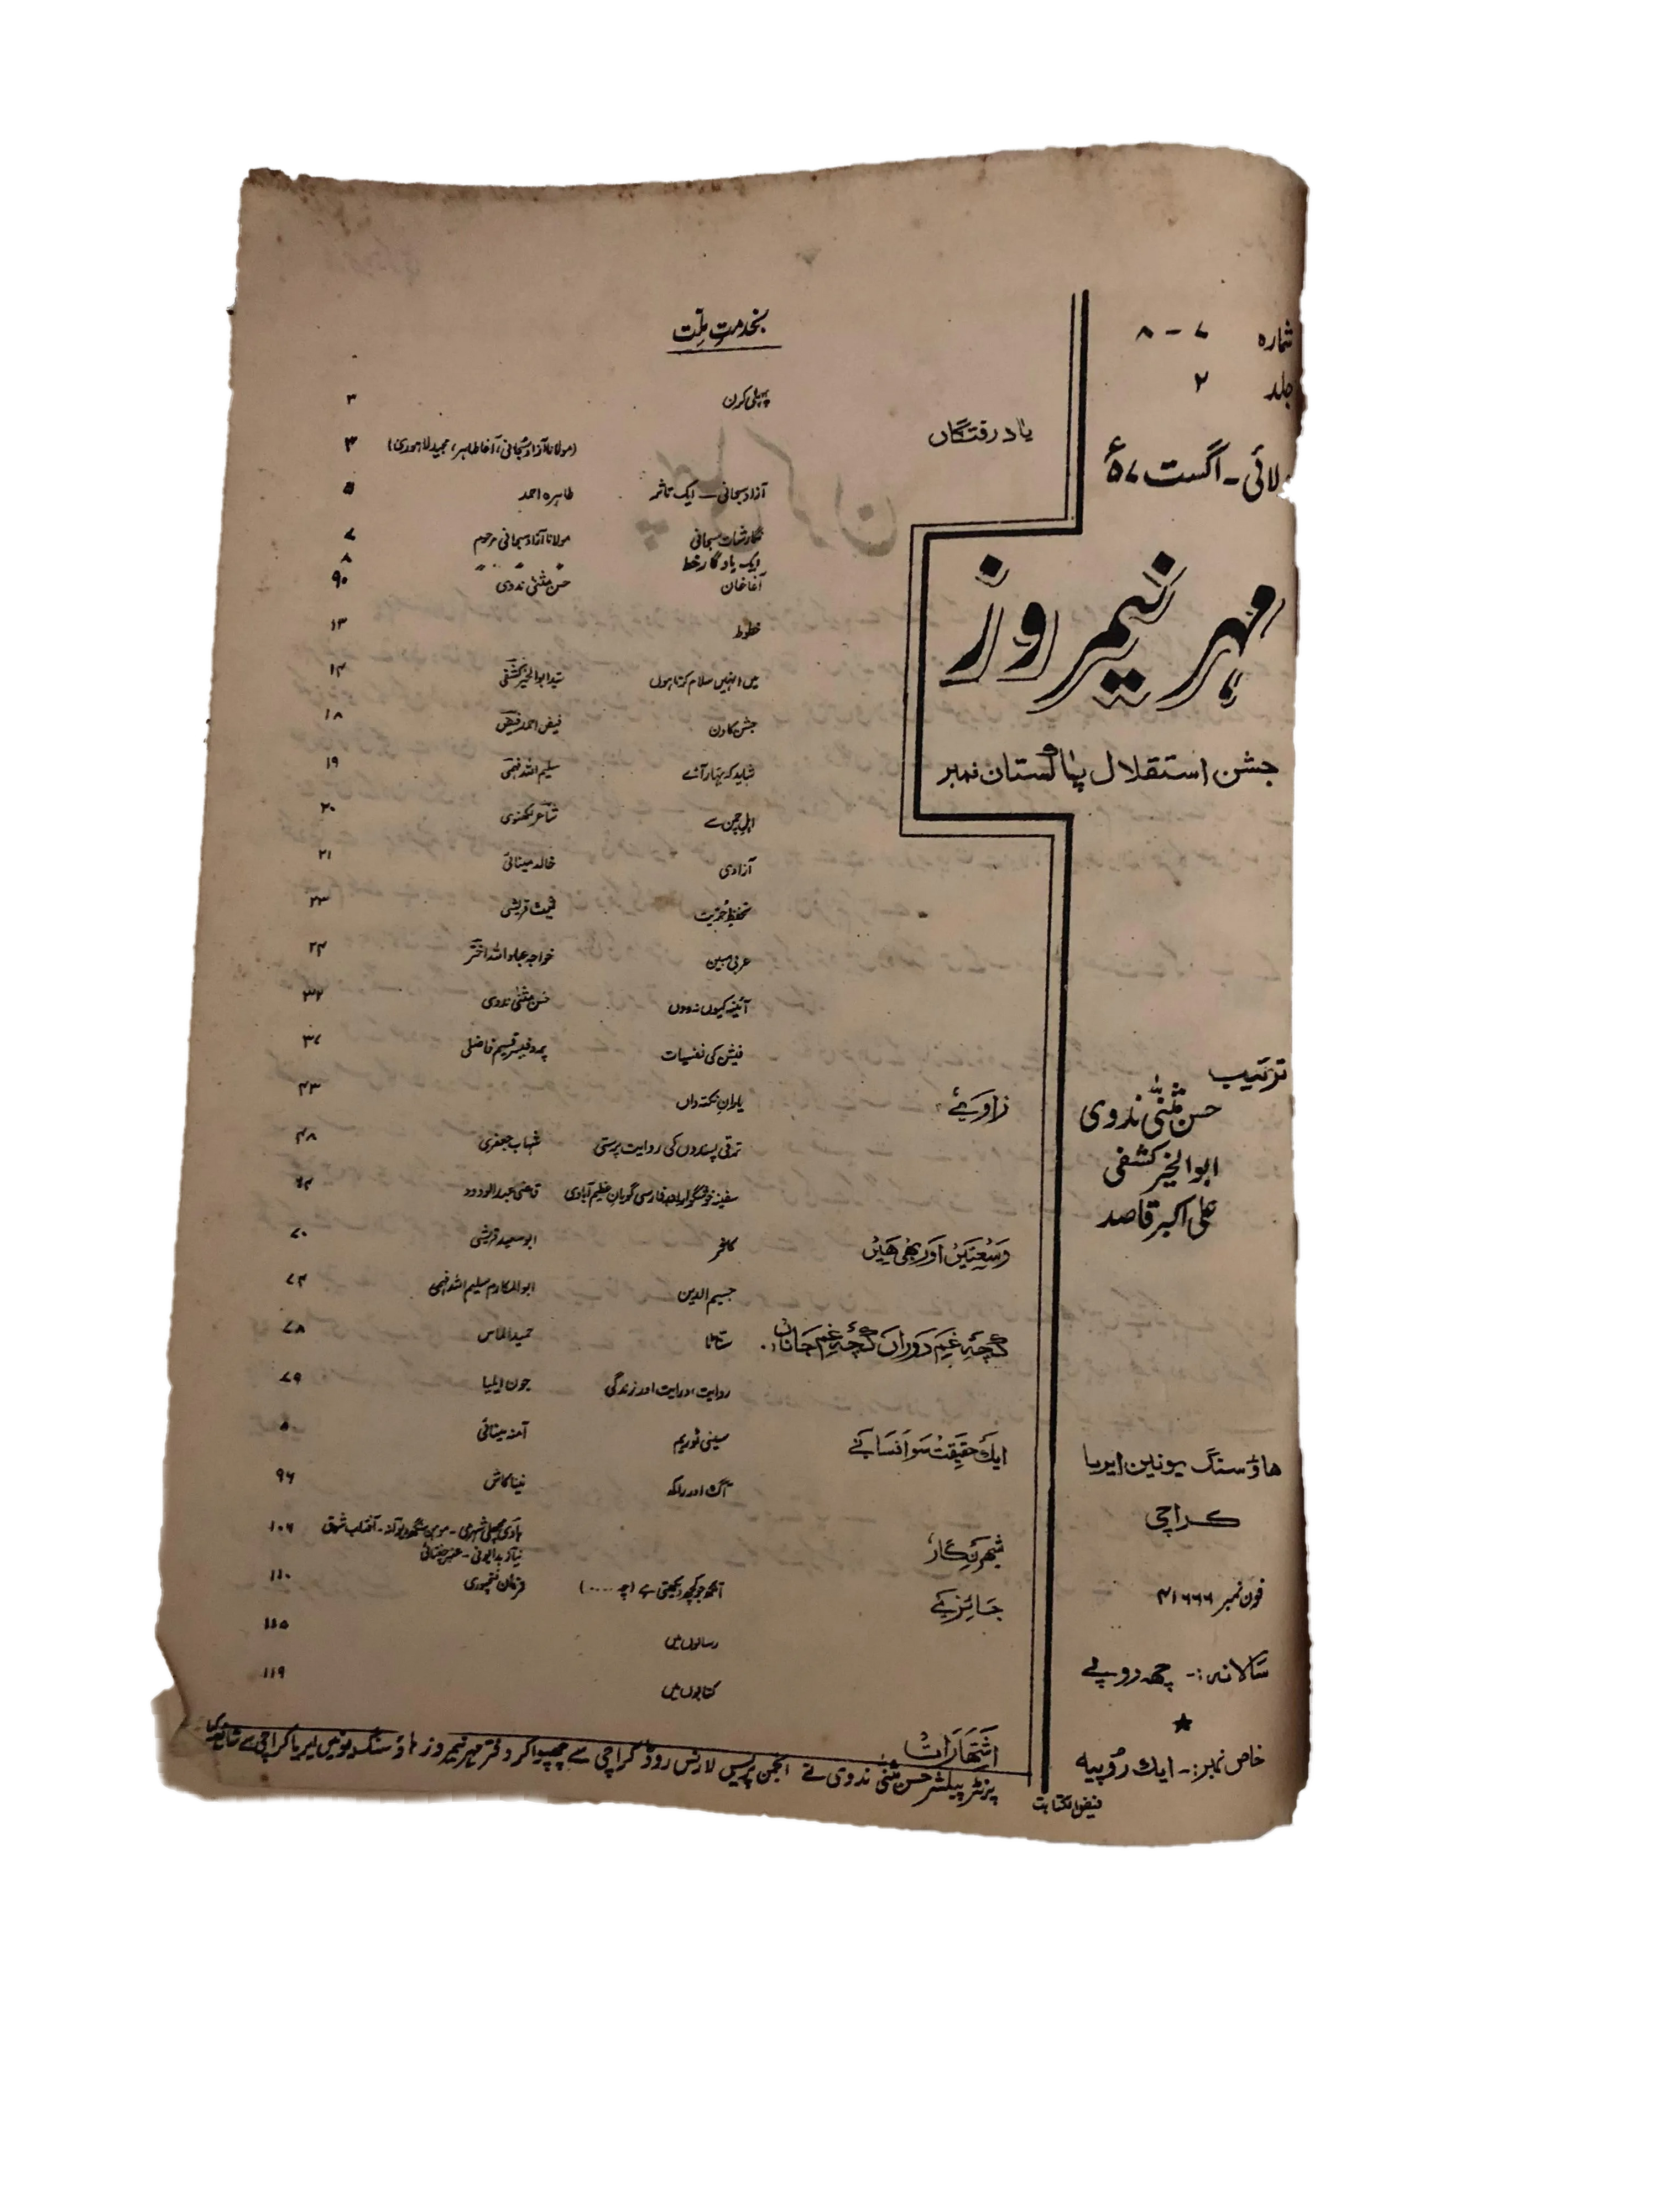 شمارہ ۷ - ۸
جلد ۲
لائی - اگست ۵۷ء
مہر نیمروز
جشن استقلال پاکستان نمبر
ترتیب
حسن مثنیٰ ندوی
ابوالخیر کشفی
علی اکبر قاصد
ھاؤسنگ یونین ایریا
کراچی
فون نمبر ۴۱۶۶۶
سالانہ :- چھ روپے
خاص نمبر :- ایک روپیہ
فیض الکتابت
بخدمتِ ملّت
پہلی کرن ۳
یاد رفتگاں (مولانا آزاد سبحانی، آغا طاہر، مجید لاہوری) ۴
آزاد سبحانی — ایک تاثر طاہرہ احمد ۵
نگارشات سبحانی مولانا آزاد سبحانی مرحوم ۷
ایک یادگار خط " " ۸
آغا خان حسن مثنیٰ ندوی ۹۰
خطوط ۱۳
میں انہیں سلام کرتا ہوں سید ابوالخیر کشفی ۱۴
جشن کا دن فیض احمد فیض ۱۸
شاید کہ بہار آئے سلیم اللہ فہمی ۱۹
اہل چمن سے شاعر لکھنوی ۲۰
آزادی خالد مینائی ۲۱
تحفظِ حُریت قریشی ۲۳
عربی مبین خواجہ عباد اللہ اختر ۲۴
آئینہ کیوں نہ دوں حسن مثنیٰ ندوی ۳۲
فیشن کی نفسیات پروفیسر قسیم فاضلی ۳۷
زاویئے یاران نکتہ داں ۴۳
ترقی پسندوں کی روایت پرستی شہاب جعفری ۴۸
سفینہ خوشگو اور بعد فارسی گویان عظیم آبادی قاضی عبدالودود ۶۴
وسعتیں اور بھی ھیں کافر ابو سعید قریشی ۷۰
جسیم الدین ابوالمکارم سلیم اللہ فہمی ۷۴
کچھ غم دوراں کچھ غم جاناں سناٹا حمید الماس ۷۸
روایت، درایت اور زندگی جون ایلیا ۷۹
ایک حقیقت سو افسانے سینی ٹوریم آمنہ مینائی
آگ اور راکھ نینا کاش ۹۶
شہر نگار ہادی مچھلی شہری - موہن سنگھ دیوانہ - آفتاب شوق ۱۰۶
نیاز بدایونی - عنبر چغتائی
جائزے آنکھ جو کچھ دیکھتی ہے (چہ ....) فرمان فتحپوری ۱۱۰
رسالوں میں ۱۱۵
کتابوں میں ۱۱۹
اشتھارات
پرنٹر پبلشر حسن مثنیٰ ندوی نے انجمن پریس لارنس روڈ کراچی سے چھپوا کر دفتر مہر نیمروز ہاؤسنگ یونین ایریا کراچی سے شائع کیا